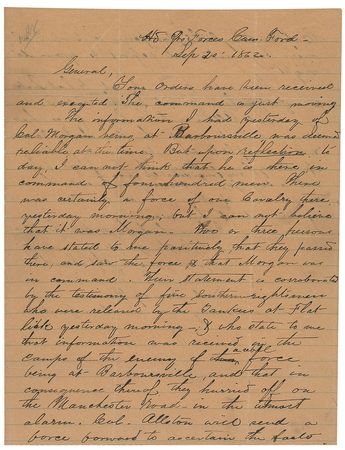 Hd. Qrs. Forces Cum. Ford -
Sep 20' 1862.
General,
Your orders have been received
and executed. The command is just moving
The information I had yesterday of
Col. Morgan being at Barboursville was deemed
reliable at the time. But upon reflection to
day, I can not think that he is there in
command of four hundred men. There
was certainly a force of our Cavalry there
yesterday morning; but I can not believe
that it was Morgan. Two or three persons
have stated to me positively that they passed
there, and saw the force & that Morgan was
in command. Their statement is corroborated
by the testimony of five Southern-rights men
who were released by the Yankees at Flat
lick yesterday morning - & who state to me
that information was received in the
camps of the enemy of a rebel force
being at Barboursville, and that in
consequence thereof they hurried off on
the Manchester road - in the utmost
alarm. Col. Allston will send a
force forward to ascertain the facts.